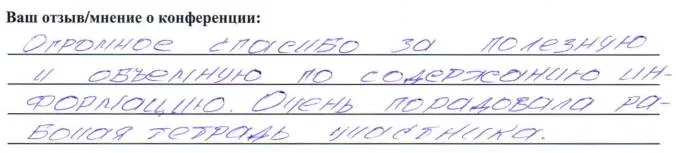 Ваш отзыв/мнение о конференции:
Огромное спасибо за полезную
и объемную по содержанию ин-
формацию. Очень порадовала ра-
бочая тетрадь участника.